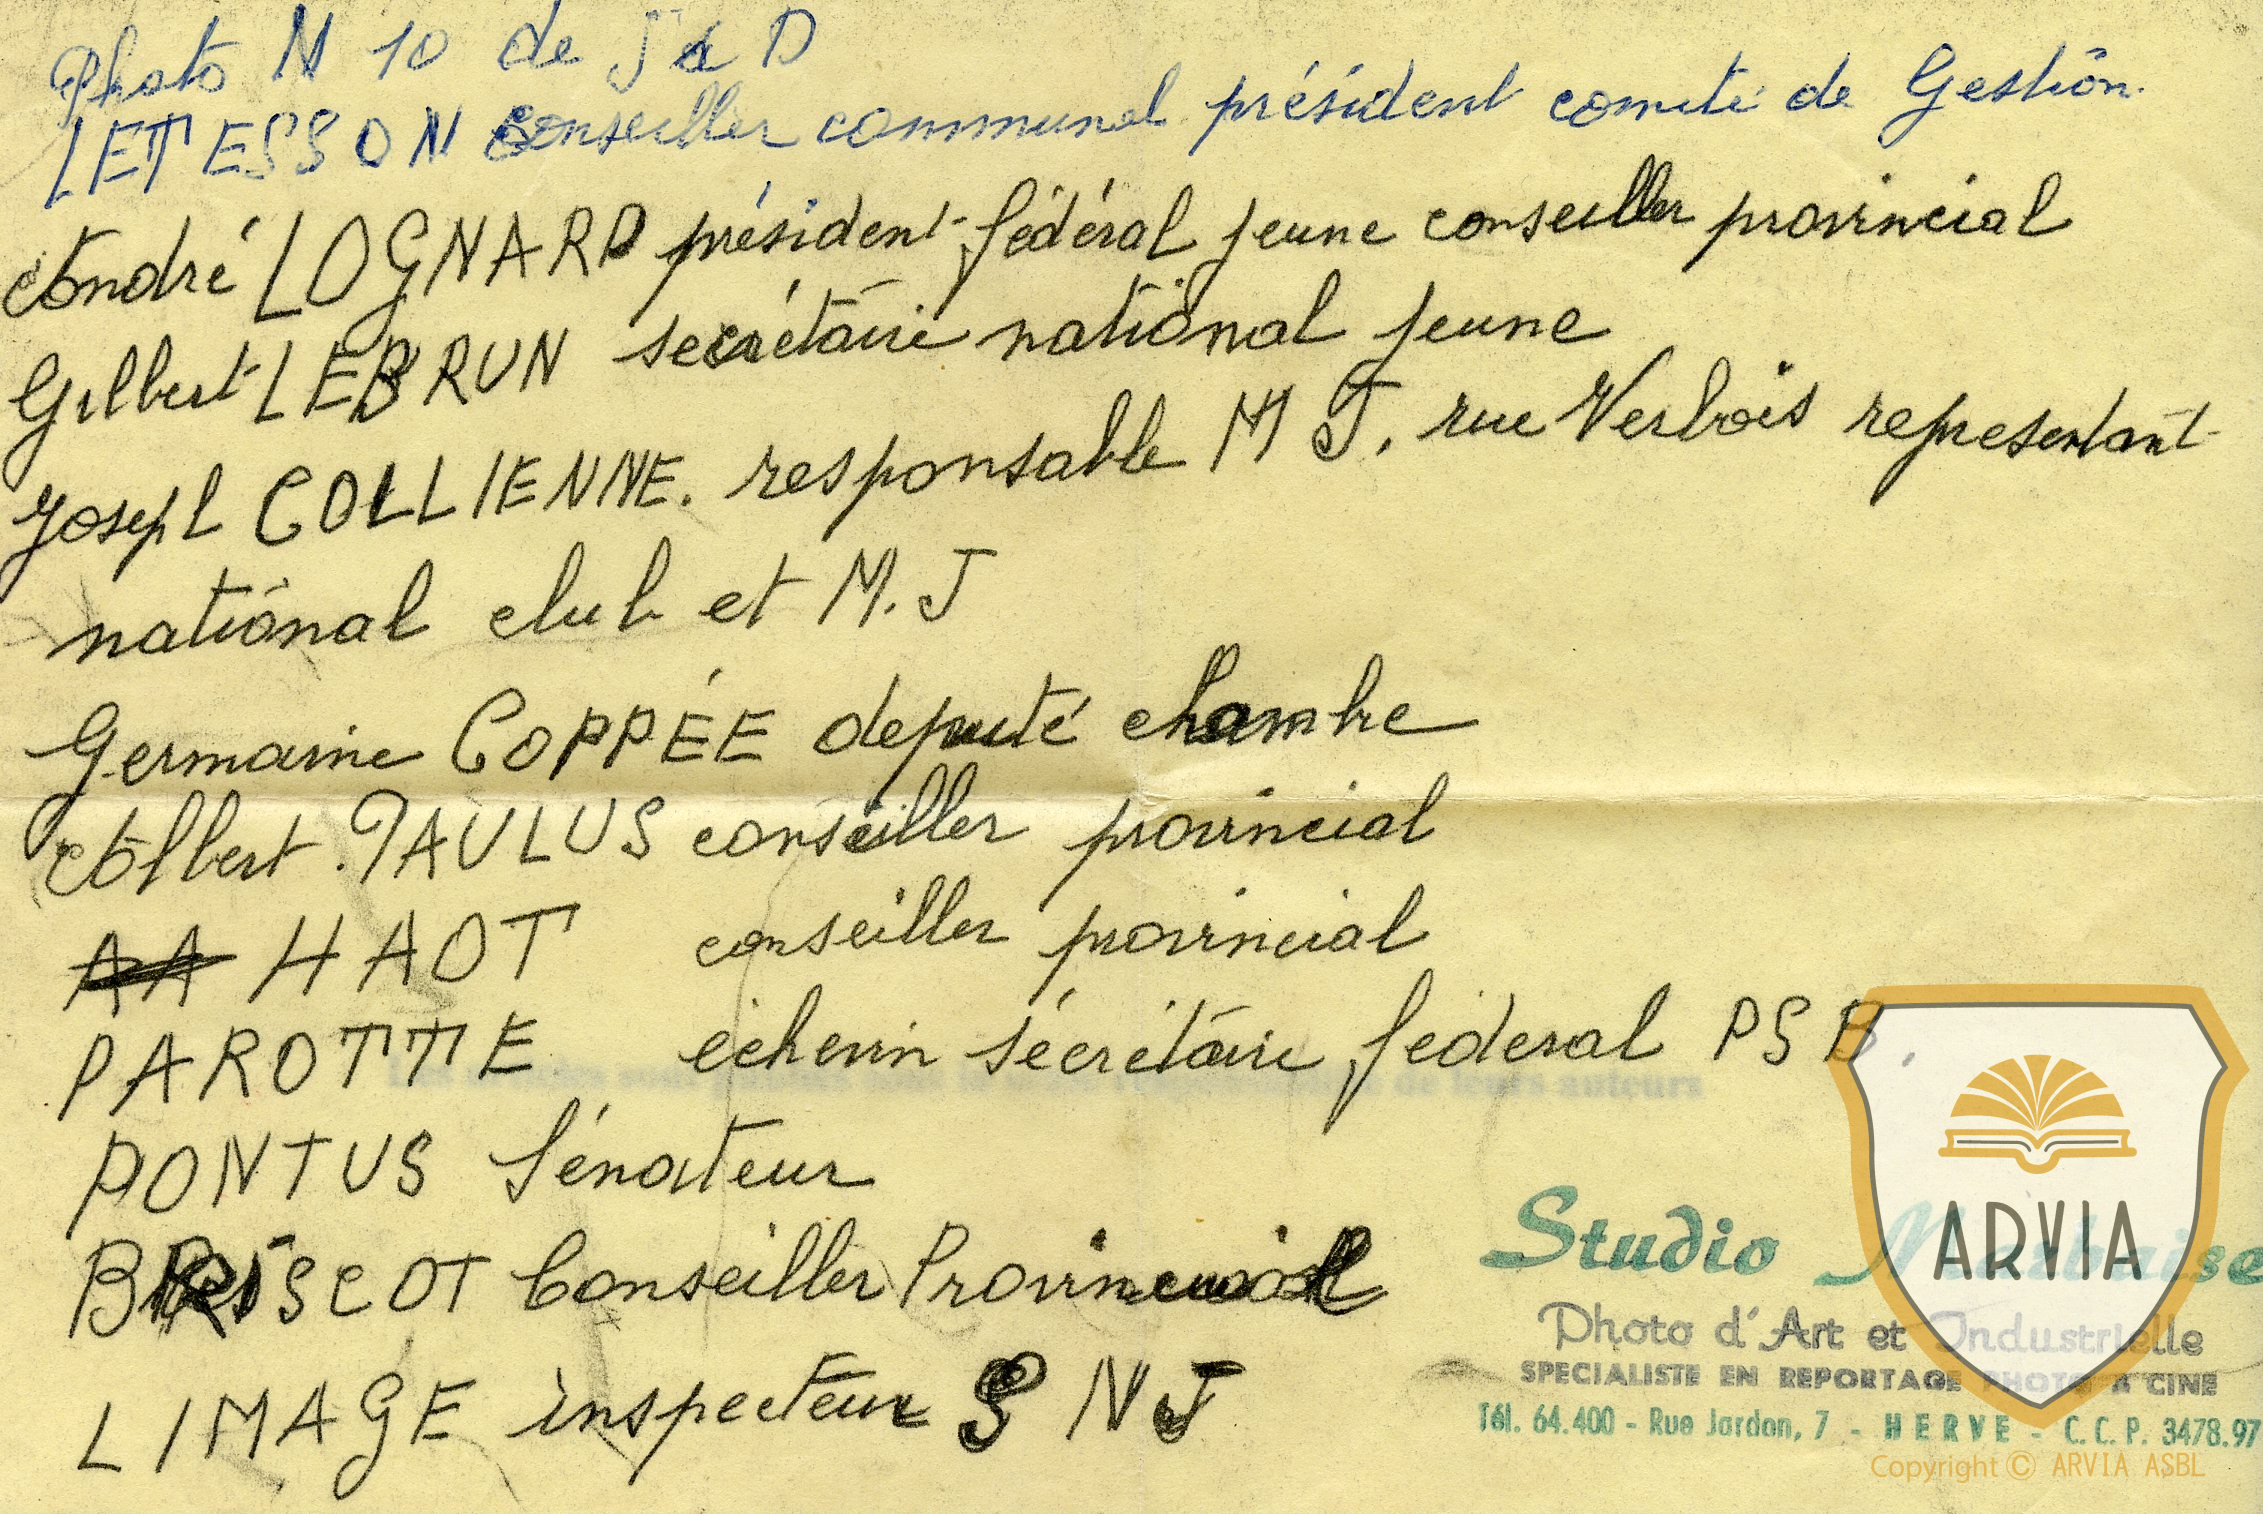 Photo N 10 de J à D
LETESSON Conseiller communal président comité de Gestion
André LOGNARD président fédéral jeune conseiller provincial
Gilbert LEBRUN secrétaire national jeune
Joseph COLLIENNE. responsable M J. rue Verbois representant
national club et M.J
Germaine COPPÉE deputé chambre
Albert PAULUS conseiller provincial
HAOT conseiller provincial
PAROTTE échevin sécrétaire féderal PSB.
PONTUS Sénateur
BRISCOT Conseiller Provincial
LIMAGE inspecteur S N J
de leurs auteurs
Studio
Photo d'Art et Industrielle
SPECIALISTE EN REPORTAGE PHOTO & CINE
Tél. 64.400 - Rue Jardon, 7 - HERVE - C.C.P. 3478.97
ARVIA
Copyright © ARVIA ASBL